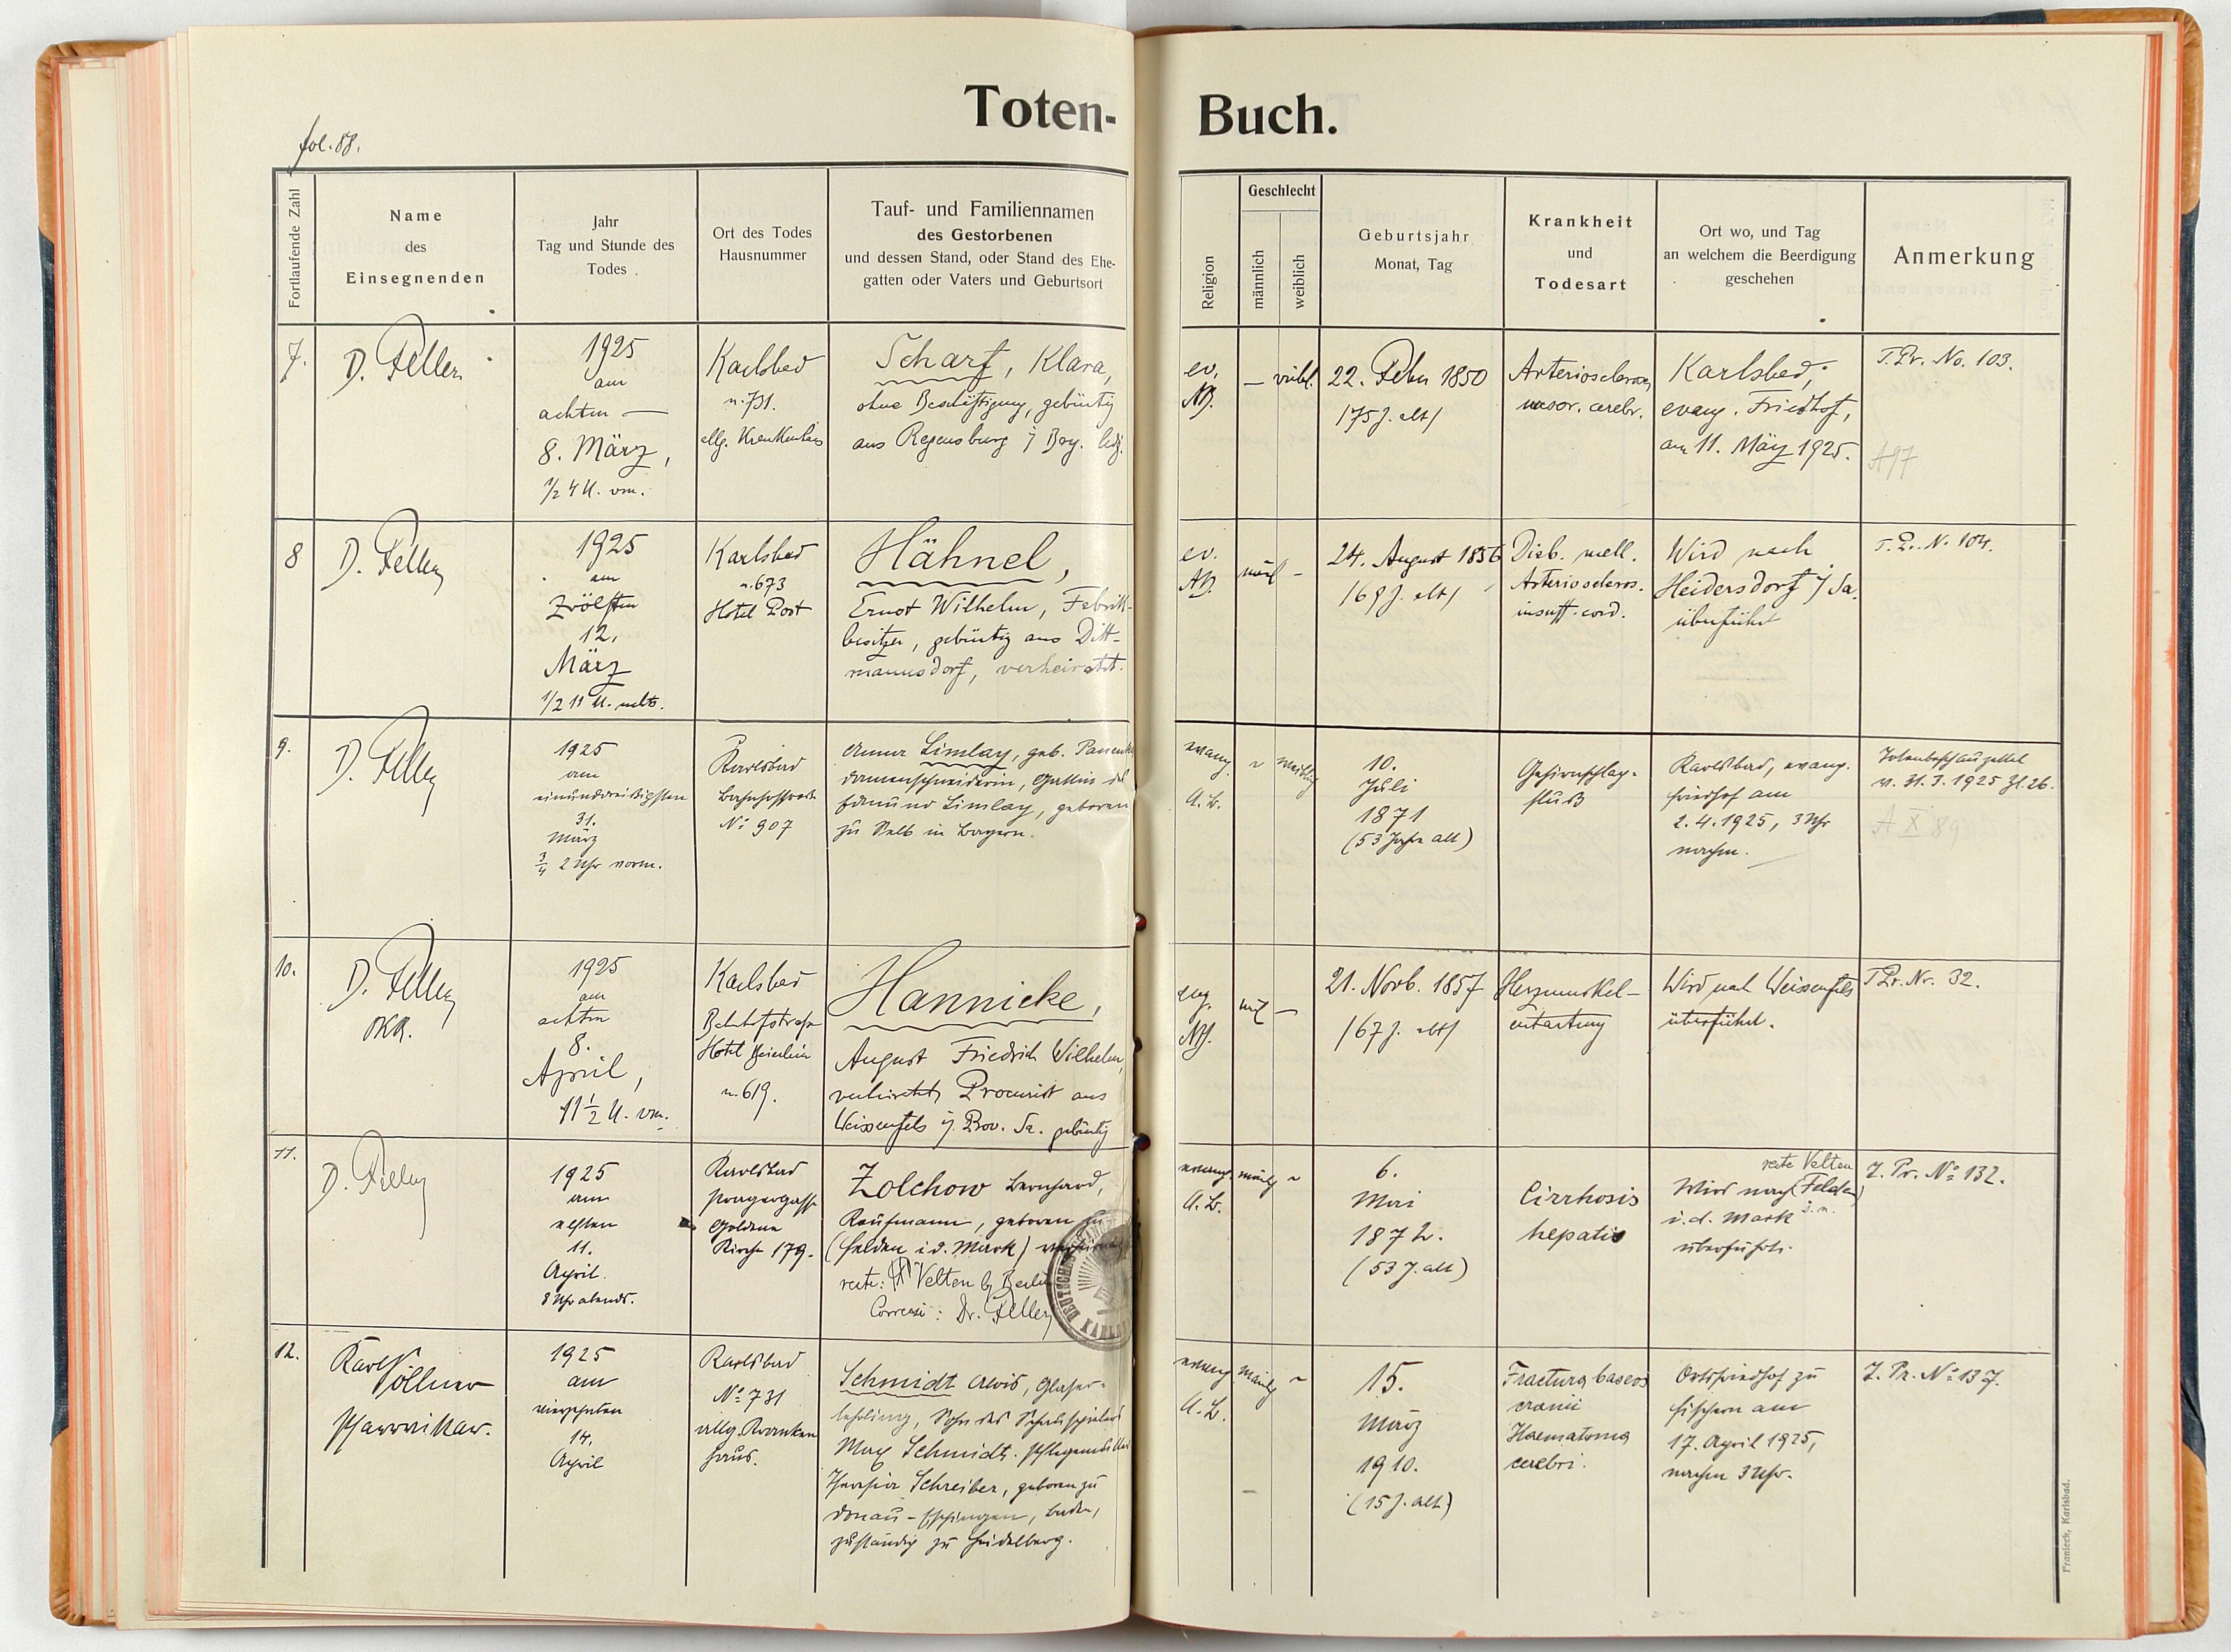 Toten-Buch.
fol. 88.
Fortlaufende Zahl
Name
des
Einsegnenden
Jahr
Tag und Stunde des
Todes
Ort des Todes
Hausnummer
Tauf- und Familiennamen
des Gestorbenen
und dessen Stand, oder Stand des Ehe-
gatten oder Vaters und Geburtsort
Religion
Geschlecht
männlich
weiblich
Geburtsjahr
Monat, Tag
Krankheit
und
Todesart
Ort wo, und Tag
an welchem die Beerdigung
geschehen
Anmerkung
7.
D. Feller
1925
am
achten —
8. März,
1/2 4 U. vm.
Karlsbad
n. 731.
allg. Krankenhaus
Scharf, Klara,
ohne Beschäftigung, gebürtig
aus Regensburg i/ Bay. led.
ev.
AB.
— weibl.
22. Feber 1850
/75 J. alt/
Arteriosclerose
vasor. cerebr.
Karlsbad,
evang. Friedhof,
am 11. März 1925.
T. Pr. No. 103.
A97
8
D. Feller
1925
am
zwölften
12.
März
1/2 11 U. nchts.
Karlsbad
n. 673
Hotel Post
Hähnel,
Ernst Wilhelm, Fabrik-
besitzer, gebürtig aus Ditt-
mannsdorf, verheiratet.
ev.
AB.
männl —
24. August 1856
/69 J. alt/
Diab. mell.
Arterioscleros.
insuff. cord.
Wird nach
Heidersdorf i/ Sa.
überführt
T. Pr. N. 104.
9.
D. Feller
1925
am
einunddreißigsten
31.
März
3/4 2 Uhr vorm.
Karlsbad
Bahnhofstraße
No 907
Anna Limlay, geb.
Damenschneiderin, Gattin des
Edmund Limlay, geboren
zu Selb in Bayern.
evang.
A. B.
~ weiblich
10.
Juli
1871
(53 Jahre alt)
Gehirnschlag-
fluß
Karlsbad, evang.
Friedhof am
2. 4. 1925, 3 Uhr
nachm.
Totenbeschauzettel
v. 31. 3. 1925 Zl. 26.
A X 89
10.
D. Feller
OKR.
1925
am
achten
8.
April,
11 1/2 U. vm.
Karlsbad
Bahnhofstraße
Hotel
n. 619.
Hannicke,
August Friedrich Wilhelm,
verheiratet, Procurist aus
Weissenfels i/. Prov. Sa. gebürtig
evg.
AB.
ml —
21. Novb. 1857
/67 J. alt/
Herzmuskel-
entartung
Wird nach Weissenfels
überführt.
T Pr. Nr. 32.
11.
D. Feller
1925
am
elften
11.
April.
8 Uhr abends.
Karlsbad
Pragergasse
Goldene
Kirche 179.
Zolchow Bernhard,
Kaufmann, geboren zu
(Felden i. d. Mark) verheiratet
recte: Velten b/ Berlin
Correxi: Dr. Feller
evang.
A. B.
männl ~
6.
Mai
1872.
(53 J. alt)
Cirrhosis
hepatis
recte Velten
Wird nach (Felden)
i. d. Mark
überführt.
T. Pr. No 132.
12.
Karl Söllner
Pfarrvikar.
1925
am
vierzehnten
14.
April
Karlsbad
No 731
allg. Kranken
haus.
Schmidt Alois, Glaser-
lehrling, Sohn des Schauspielers
Max Schmidt. Pflegemutter
Theresia Schreiber, geboren zu
Donau-Eschingen, Baden,
zuständig zu Heidelberg.
evang.
A. B.
männl ~
15.
März
1910.
(15 J. alt)
Fractura baseos
cranii
Haematoma
cerebri.
Ortsfriedhof zu
Fischern am
17. April 1925,
nachm 3 Uhr.
T. Pr. No 137.
Franieck, Karlsbad.